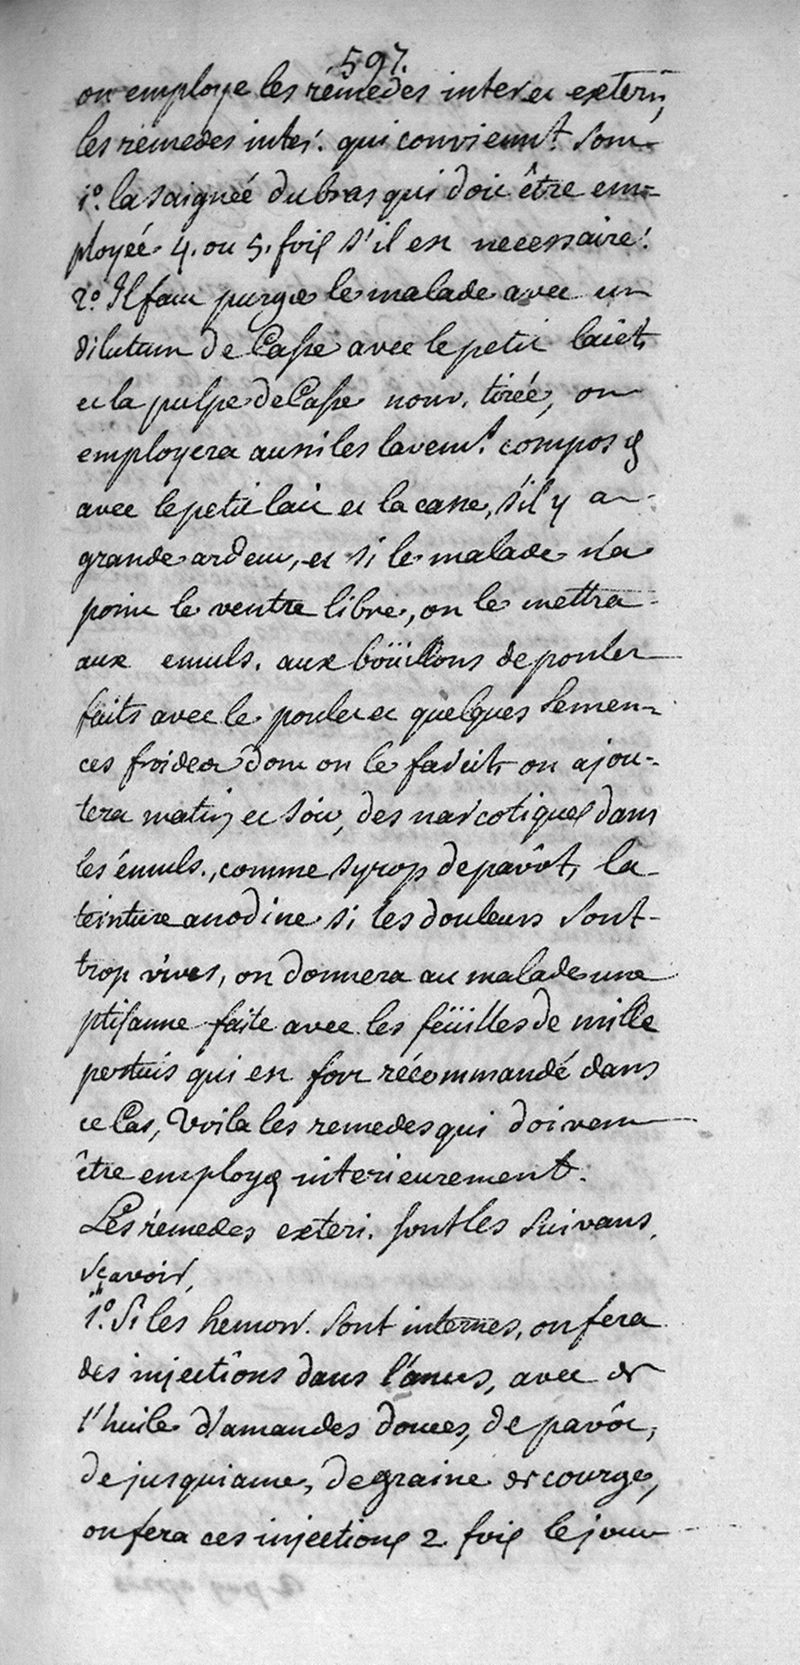 597.
on employe les rémedes inter. et extern,
les remedes inter. qui convienn.t sont
1.o la saignée du bras qui doit être em=
ployée 4. ou 5. fois s'il est necessaire.
2.o Il faut purger le malade avec un
dilutum de Casse avec le petit laict,
et la pulpe de Casse nouv. tirée, on
employera aussi les lavem.t composés
avec le petit lait et la casse, s'il y a
grande ardeur, et si le malade n'a
point le ventre libre, on le mettra
aux emuls. aux boüillons de poulet
faits avec le poulet et quelques semen=
ces froides dont on le farcit, on ajou=
tera matin et soir, des narcotiques dans
les émuls., comme syrop de pavôt, la
teinture anodine si les douleurs sont
trop vives, on donnera au malade une
ptisanne faite avec les feüilles de mille
pertuis qui est fort récommandé dans
ce Cas, Voila les remedes qui doivent
être employés interieurement.
Les rémedes exteri. sont les suivans,
sçavoir,
1.o Si les hemorr. sont internes, on fera
des injections dans l'anus, avec de
l'huile d'amandes douces, de pavôt,
de jusquiame, de graine de courge,
on fera ces injections 2 fois le jour